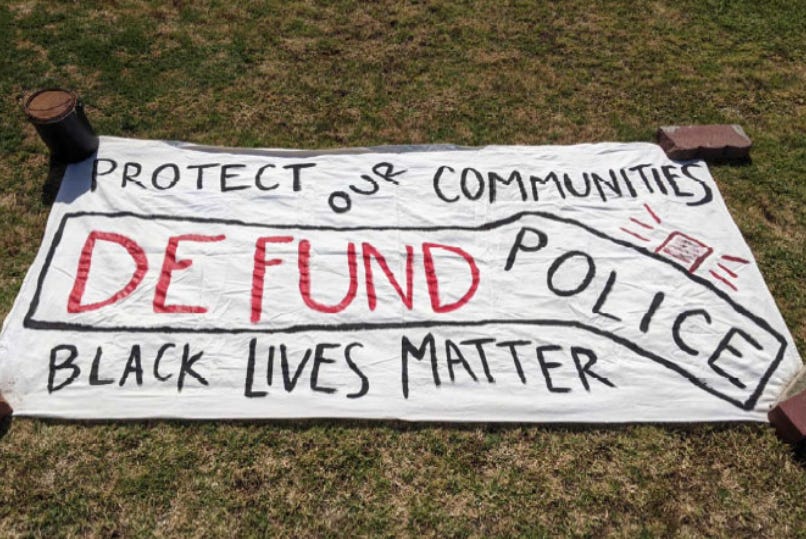 PROTECT OUR COMMUNITIES
DEFUND POLICE
BLACK LIVES MATTER